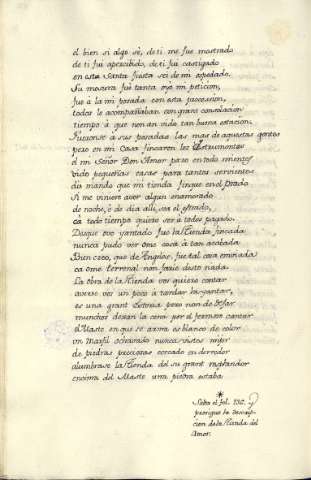 el bien si algo sé, de ti me fue mostrado
de ti fui apercibido, de ti fui castigado
en esta santa fiesta sei de mi ospedado.
Su mesura fui tanta oya mi peticion,
fue á la mi posada con esta procession,
todos le acompañaban con grant consolacion
tiempo á que non an vido tan buena estacion.
Fueronse á sus posadas las mas de aquestas gentes
pero en mi Casa fincaron los Estrumentos
el mi Señor Don Amor paro en todo mientes
vido pequeñas casas para tantos servientes
diz mando que mi tienda finque en el Prado
Si me viniere aver algun enamorado
de noche, é de dia alli, sea el estrado,
ca todo tiempo quiero ser á todos pagado.
Desque ovo yantado fue la tienda fincada
nunca pudo ver ome cosa á tan acabada
Bien creo, que de Angeles fue tal cosa embiada
ca ome terrenal non faria desto nada.
La obra de la tienda vos quiero contar
averse vos un poco á tardar la yantar,
es una grant Estoria pero non de dejar
munchos dexan la cena por el fermoso cantar
el Maste en que se arma es blanco de color
un Marfil ochavado nunca vistes mejor
de piedras preciosas cercado en derredor
alumbrase la tienda del su grant resplandor
encima del Maste una piedra estaba
Salta el fol. 132. y
prosigue la descrip-
cion de la tienda del
Amor.